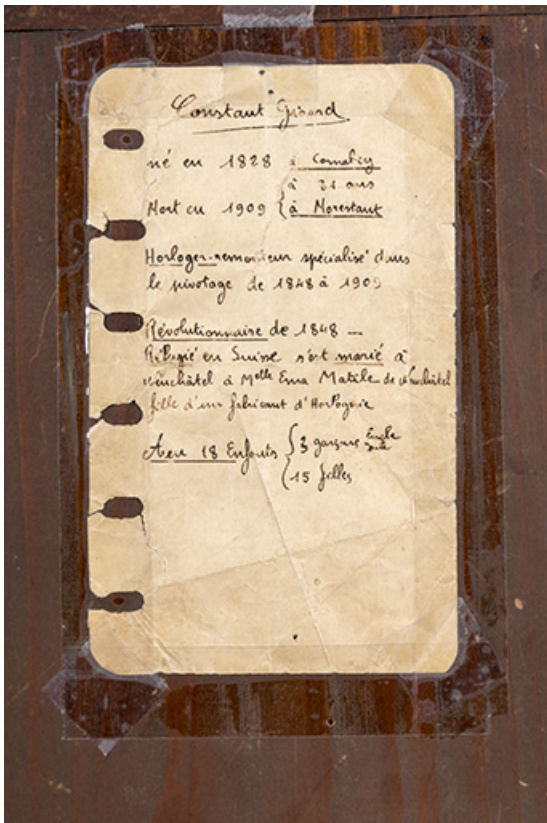 Constant Girard
né en 1828 à Cornabey
à 81 ans
Mort en 1909 à Morestaut
Horloger-remonteur spécialisé dans
le pivotage de 1848 à 1909
Révolutionnaire de 1848 —
Réfugié en Suisse s'est marié à
Neuchâtel à Melle Ema Matile de Neuchâtel
fille d'un fabricant d'Horlogerie
A eu 18 Enfants 3 garçons
15 filles